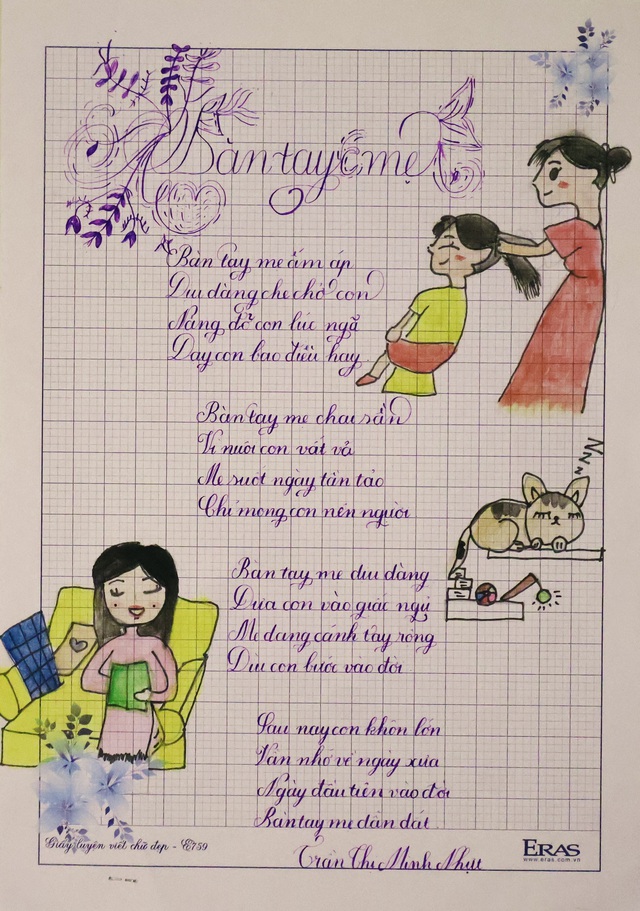 Bàn tay mẹ
Bàn tay mẹ ấm áp
Dịu dàng che chở con
Nâng đỡ con lúc ngã
Dạy con bao điều hay
Bàn tay mẹ chai sần
Vì nuôi con vất vả
Mẹ suốt ngày tần tảo
Chỉ mong con nên người
Bàn tay mẹ dịu dàng
Đưa con vào giấc ngủ
Mẹ dang cánh tay rộng
Dìu con bước vào đời
Sau này con khôn lớn
Vẫn nhớ về ngày xưa
Ngày đầu tiên vào đời
Bàn tay mẹ dẫn dắt
Trần Thị Minh Như
NNNN
Giấy luyện viết chữ đẹp - E759
ERAS
www.eras.com.vn